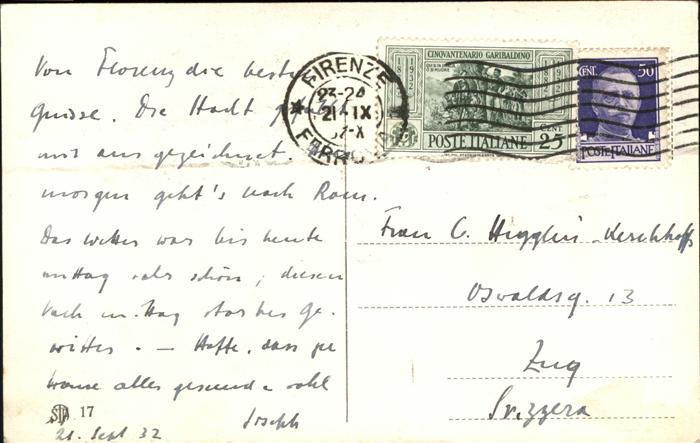 Von Florenz die besten
Grüsse. Die Stadt gefällt
mir ausgezeichnet.
morgen geht's nach Rom.
Das Wetter war bis heute
mittag sehr schön, diesen
Nachmittag starkes Ge-
witter. — Hoffe, dass
alles gesund & wohl
Joseph
21. Sept 32
STA 17
FIRENZE
23-24
21 IX
32-X
FERROVIA
CINQUANTENARIO GARIBALDINO
QUI SI FA L'ITALIA O SI MUORE
1932
1882
POSTE ITALIANE
CENT 25
CENT. 50
POSTE ITALIANE
Frau C. Hugglin-Kerckhoffs
Oswaldsg. 13
Zug
Svizzera